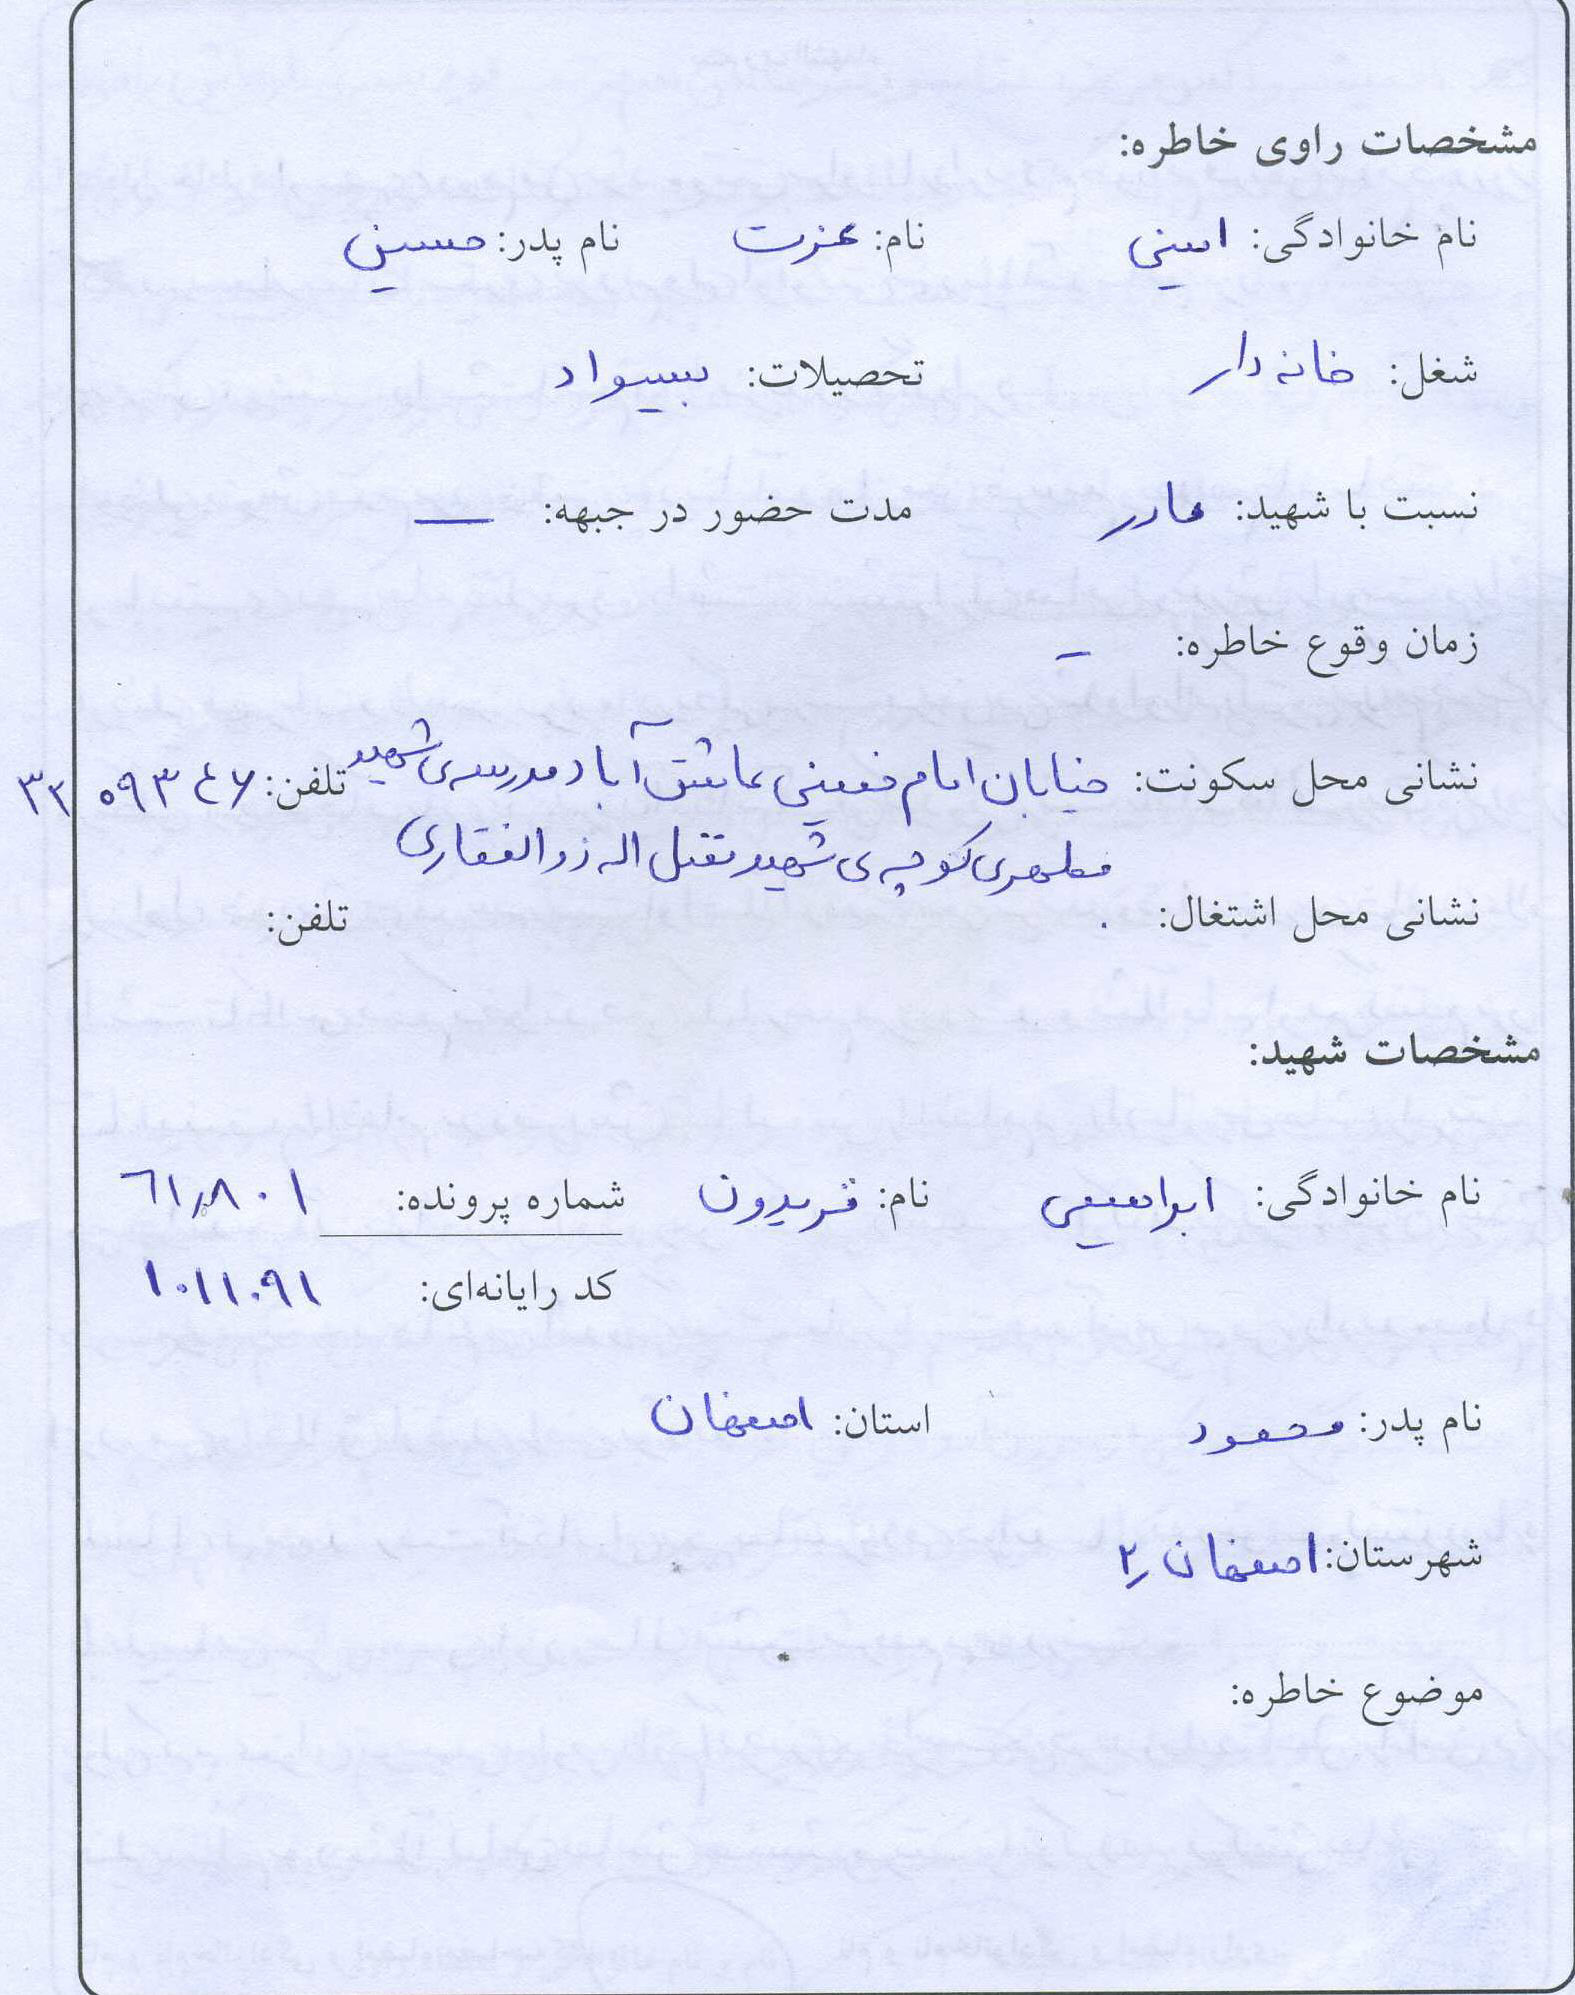 مشخصات راوی خاطره:
نام خانوادگی: امینی نام: عزت نام پدر: حسین
شغل: خانه دار تحصیلات: بیسواد
نسبت با شهید: مادر مدت حضور در جبهه: —
زمان وقوع خاطره: –
نشانی محل سکونت: خیابان امام خمینی عاشق آباد مدرسه‌ی شهید تلفن: ۳۳۰۵۹۳۴۶
مطهری کوچه ی شهید اله ذوالفقاری
نشانی محل اشتغال: . تلفن:
مشخصات شهید:
نام خانوادگی: ابراهیمی نام: فریدون شماره پرونده: ۶۱٫۸۰۱
کد رایانه‌ای: ۱۰۱۱۰۹۱
نام پدر: محمود استان: اصفهان
شهرستان: اصفهان ۲
موضوع خاطره: